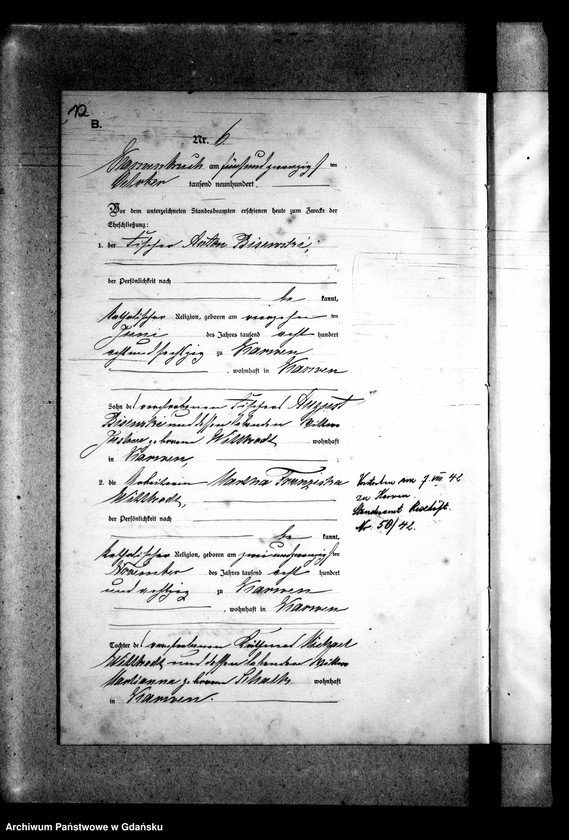 12
B.
Nr. 6
am fünfundzwanzigsten
October tausend neunhundert
Vor dem unterzeichneten Standesbeamten erschienen heute zum Zwecke der
Eheschließung:
1. der Fischer Anton Bisewski,
der Persönlichkeit nach
be kannt,
katholischer Religion, geboren am vierzehnten
Juni des Jahres tausend acht hundert
achtundsechzig zu Karwen
, wohnhaft in Karwen
Sohn des verstorbenen Fischers August
Bisewski und dessen lebenden Wittwe
geborene wohnhaft
in Karwen,
2. die Arbeiterin Martha Franziska
der Persönlichkeit nach
be kannt,
katholischer Religion, geboren am zweiundzwanzigsten
November des Jahres tausend acht hundert
und achtzig zu Karwen
, wohnhaft in Karwen
Tochter des verstorbenen Michael
und dessen lebenden Wittwe
Marianna geborene wohnhaft
in Karwen.
Verstorben am 7. VIII. 42
zu Karwen
Standesamt
Nr. 50/42.
Archiwum Państwowe w Gdańsku